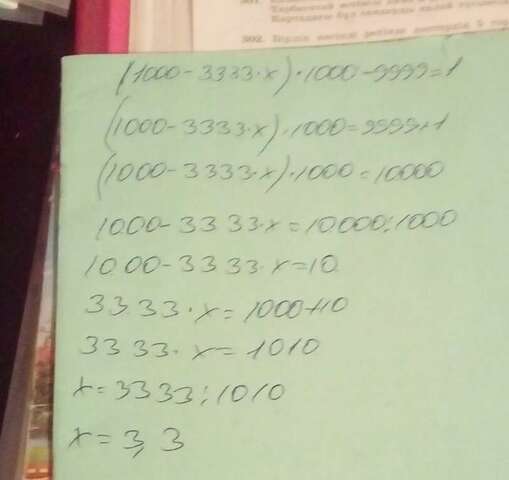 302.
(1000-3333·x)·1000-9999=1
(1000-3333·x)·1000=9999+1
(1000-3333·x)·1000=10000
1000-3333·x=10000:1000
1000-3333·x=10
3333·x=1000+10
3333·x=1010
x=3333:1010
x=3,3